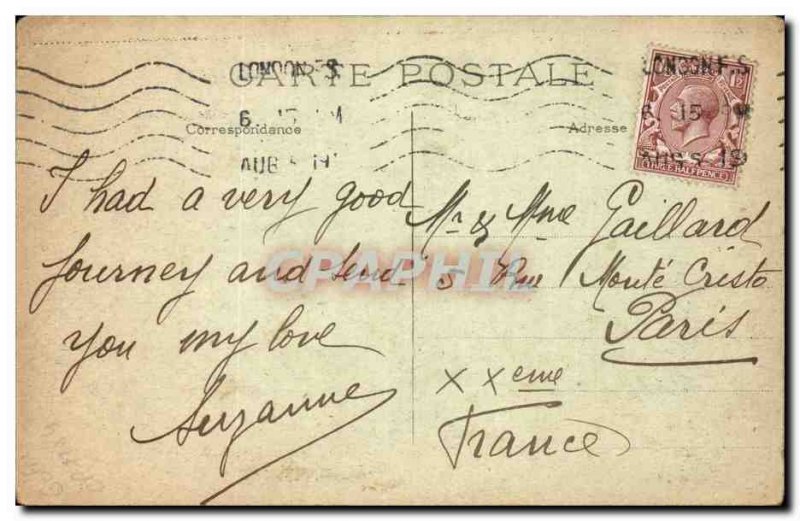 CARTE POSTALE
Correspondance
Adresse
LONDON F.S
6. 15 PM
AUG 5 19
LONDON F.S
6 15 PM
AUG 5 19
THREE HALFPENCE
I had a very good
journey and send
you my love
Suzanne
Mr & Mme Gaillard
5 Rue Monté Cristo
Paris
XXeme
France
CPRAPHIL